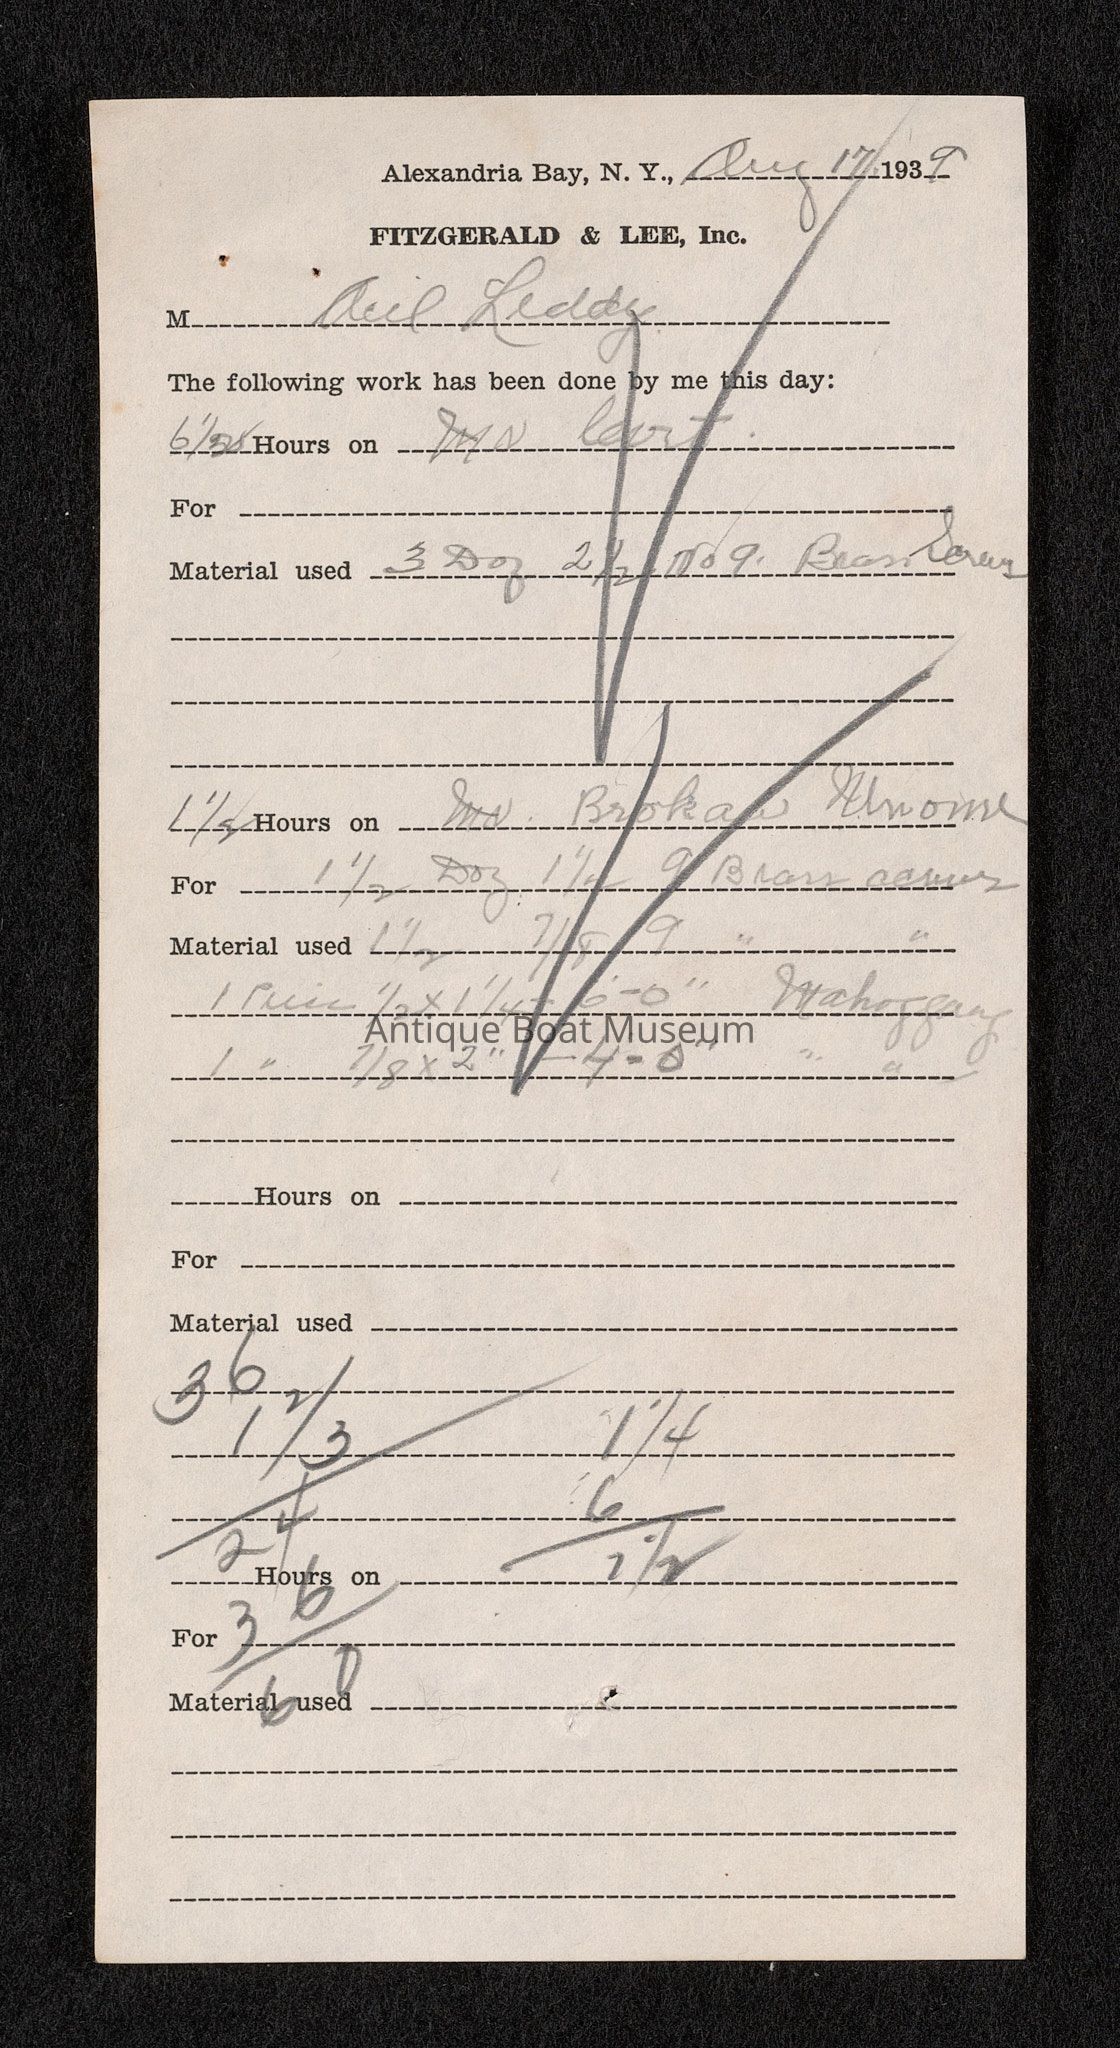 Alexandria Bay, N. Y., Aug 17 1939
FITZGERALD & LEE, Inc.
M Leddy
The following work has been done by me this day:
6 1/2 Hours on Mr
For
Material used 3 Doz 2 1/2 No 9. Brass Screws
1 1/2 Hours on Mr. Brokaw
For 1 1/2 Doz 9 Brass
Material used 1 1/2 7/8 9 " "
1 1/2 x 1 1/4 - 6'-0" Mahoggany
Antique Boat Museum
1 " 7/8 x 2" - 4-0" " "
Hours on
For
Material used
36
1 2/3 1 1/4
24 6
Hours on 7 1/2
36
For
60
Material used